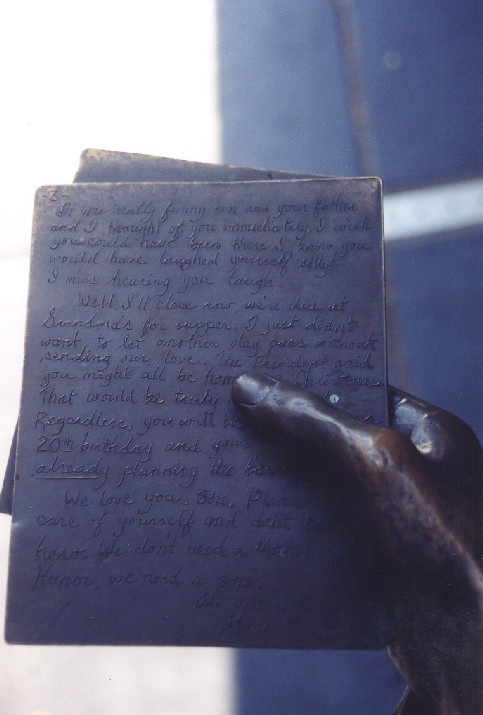 -2-
It was really funny son and your father
and I thought of you immediately. I wish
you could have been there. I know you
would have laughed yourself silly!
I miss hearing you laugh.
Well I'll close now we're due at
Grandma's for supper. I just didn't
want to let another day pass without
sending our love. The President said
you might all be home Christmas
That would be truly
Regardless, you will be
20th birthday and your
already planning the
We love you Son. Please
care of yourself and don't be
hero. We don't need a Medal
Honor, we need a son.
All our
Mom